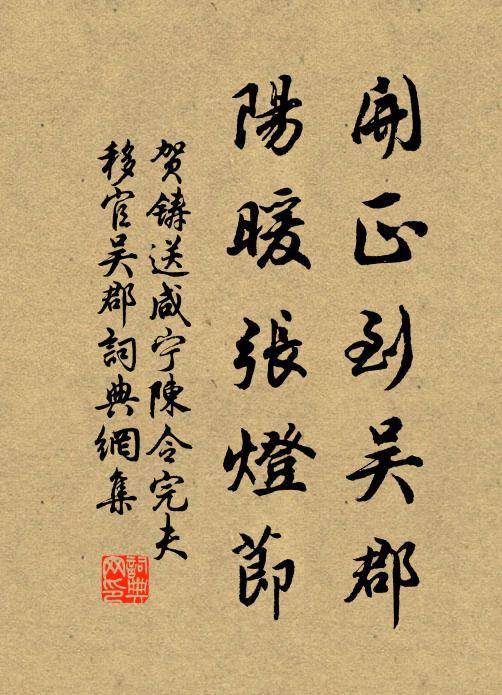 開正到吴郡
陽暖張燈節
贺鑄送咸宁陳令完夫
移官吴郡詞典網集
詞典
网印